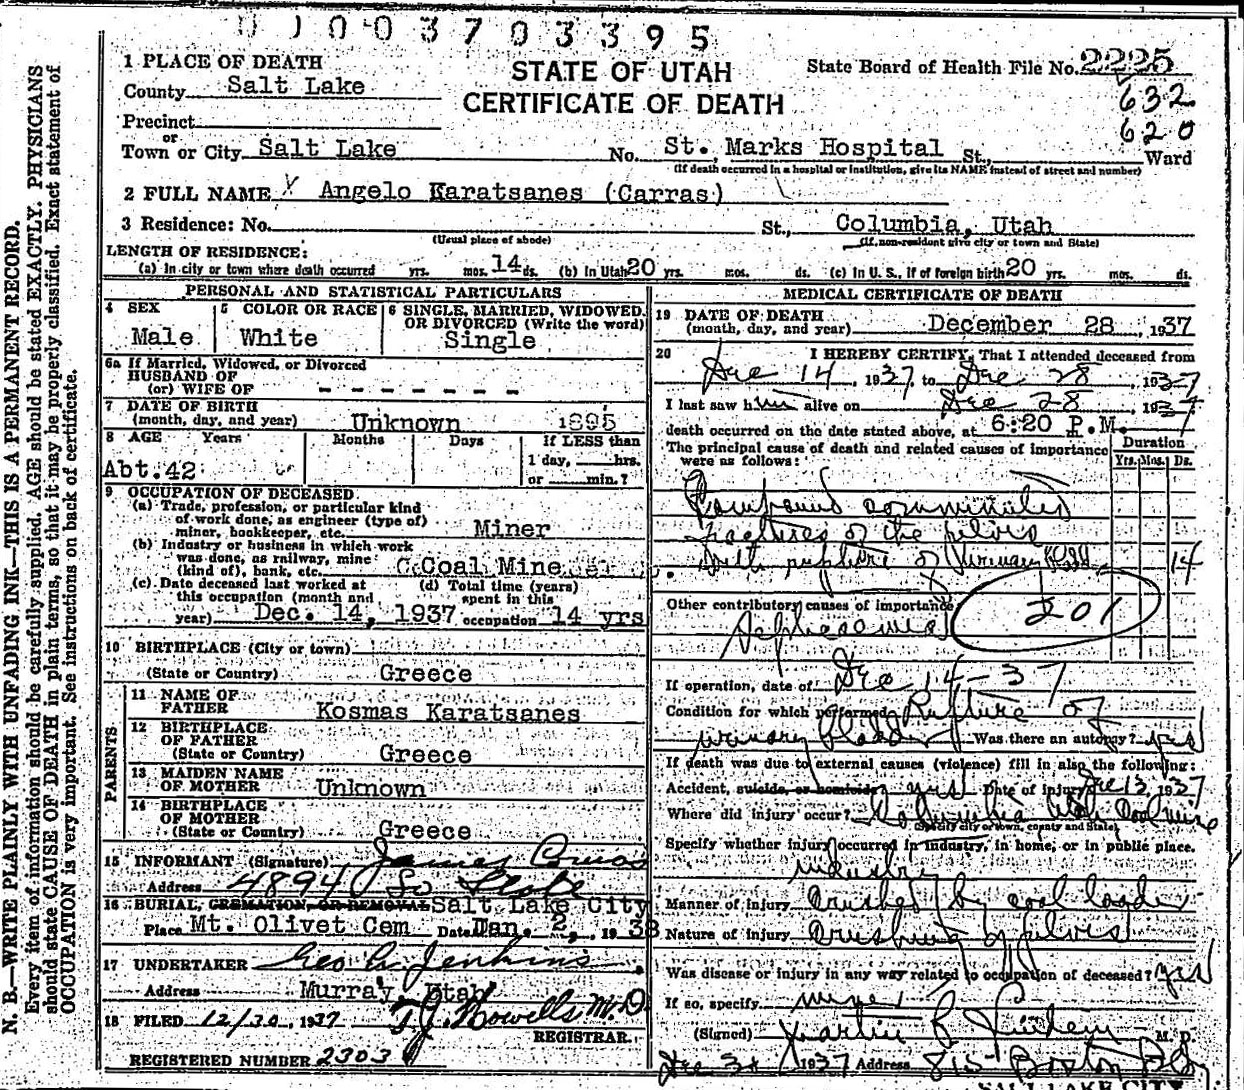 01003703395
1 PLACE OF DEATH
County Salt Lake
Precinct
or
Town or City Salt Lake
STATE OF UTAH
CERTIFICATE OF DEATH
State Board of Health File No. 2225
632
620
No. St. Marks Hospital St., Ward
(If death occurred in a hospital or institution, give its NAME instead of street and number)
2 FULL NAME Angelo Karatsanes (Carras)
3 Residence: No. St., Columbia, Utah
(Usual place of abode) (If non-resident give city or town and State)
LENGTH OF RESIDENCE:
(a) In city or town where death occurred yrs. mos. 14 ds. (b) In Utah 20 yrs. mos. ds. (c) In U. S., if of foreign birth 20 yrs. mos. ds.
PERSONAL AND STATISTICAL PARTICULARS
4 SEX 5 COLOR OR RACE 6 SINGLE, MARRIED, WIDOWED,
OR DIVORCED (Write the word)
Male White Single
6a If Married, Widowed, or Divorced
HUSBAND OF
(or) WIFE OF - - - - - - -
7 DATE OF BIRTH
(month, day, and year) Unknown 1895
8 AGE Years Months Days If LESS than
1 day, hrs.
or min.?
Abt. 42
9 OCCUPATION OF DECEASED
(a) Trade, profession, or particular kind
of work done, as engineer (type of)
miner, bookkeeper, etc. Miner
(b) Industry or business in which work
was done, as railway, mine
(kind of), bank, etc. Coal Mine
(c) Date deceased last worked at (d) Total time (years)
this occupation (month and spent in this
year) Dec. 14, 1937 occupation 14 yrs
10 BIRTHPLACE (City or town)
(State or Country) Greece
PARENTS
11 NAME OF
FATHER Kosmas Karatsanes
12 BIRTHPLACE
OF FATHER
(State or Country) Greece
13 MAIDEN NAME
OF MOTHER Unknown
14 BIRTHPLACE
OF MOTHER
(State or Country) Greece
15 INFORMANT (Signature) James
Address 4894 So State
16 BURIAL, CREMATION, OR REMOVAL Salt Lake City
Place Mt. Olivet Cem Date Jan. 2, 1938
17 UNDERTAKER Geo A. Jenkins
Address Murray, Utah
18 FILED 12/30, 1937 T.J. Howells M.D.
REGISTRAR.
REGISTERED NUMBER 2303
MEDICAL CERTIFICATE OF DEATH
19 DATE OF DEATH
(month, day, and year) December 28, 1937
20 I HEREBY CERTIFY, That I attended deceased from
Dec 14, 1937, to Dec 28, 1937
I last saw him alive on Dec 28, 1937
death occurred on the date stated above, at 6:20 P.M.
The principal cause of death and related causes of importance
were as follows:
Duration
Yrs. Mos. Ds.
Compound comminuted
fractures of the pelvis
with rupture of Urinary Bladd. 14
Other contributory causes of importance
201
If operation, date of Dec 14-37
Condition for which performed Rupture of
urinary bladder Was there an autopsy? yes
If death was due to external causes (violence) fill in also the following:
Accident, suicide, or homicide? yes Date of injury Dec 13, 1937
Where did injury occur? Columbia Utah Coal mine
(Specify city or town, county and State)
Specify whether injury occurred in industry, in home, or in public place.
industry
Manner of injury Crushed by coal loader
Nature of injury Crushing of pelvis
Was disease or injury in any way related to occupation of deceased? yes
If so, specify miner
(Signed) M. D.
Dec 31 1937 Address 815 Boston Bldg
SALT LAKE CITY
N. B.—WRITE PLAINLY WITH UNFADING INK—THIS IS A PERMANENT RECORD.
Every item of information should be carefully supplied. AGE should be stated EXACTLY. PHYSICIANS
should state CAUSE OF DEATH in plain terms, so that it may be properly classified. Exact statement of
OCCUPATION is very important. See instructions on back of certificate.